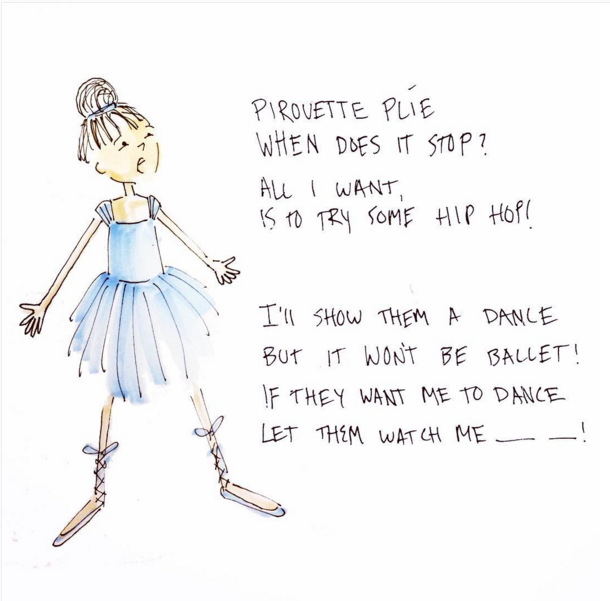 PIROUETTE PLIÉ
WHEN DOES IT STOP?
ALL I WANT,
IS TO TRY SOME HIP HOP!
I'll SHOW THEM A DANCE
BUT IT WON'T BE BALLET!
IF THEY WANT ME TO DANCE
LET THEM WATCH ME ___ ___!